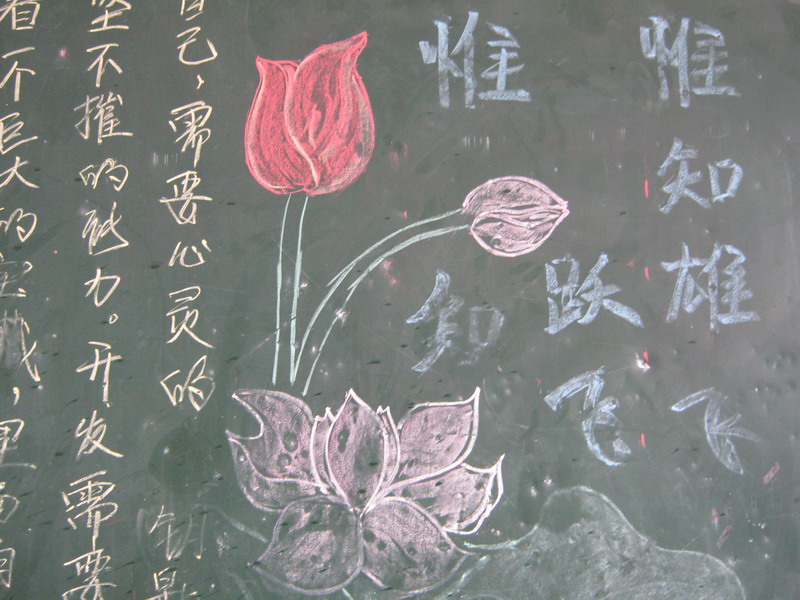 着一个巨大的宝藏，里面
坚不摧的能力。开发需要
自己，需要心灵的钥匙
惟知
跃飞
惟知雄飞